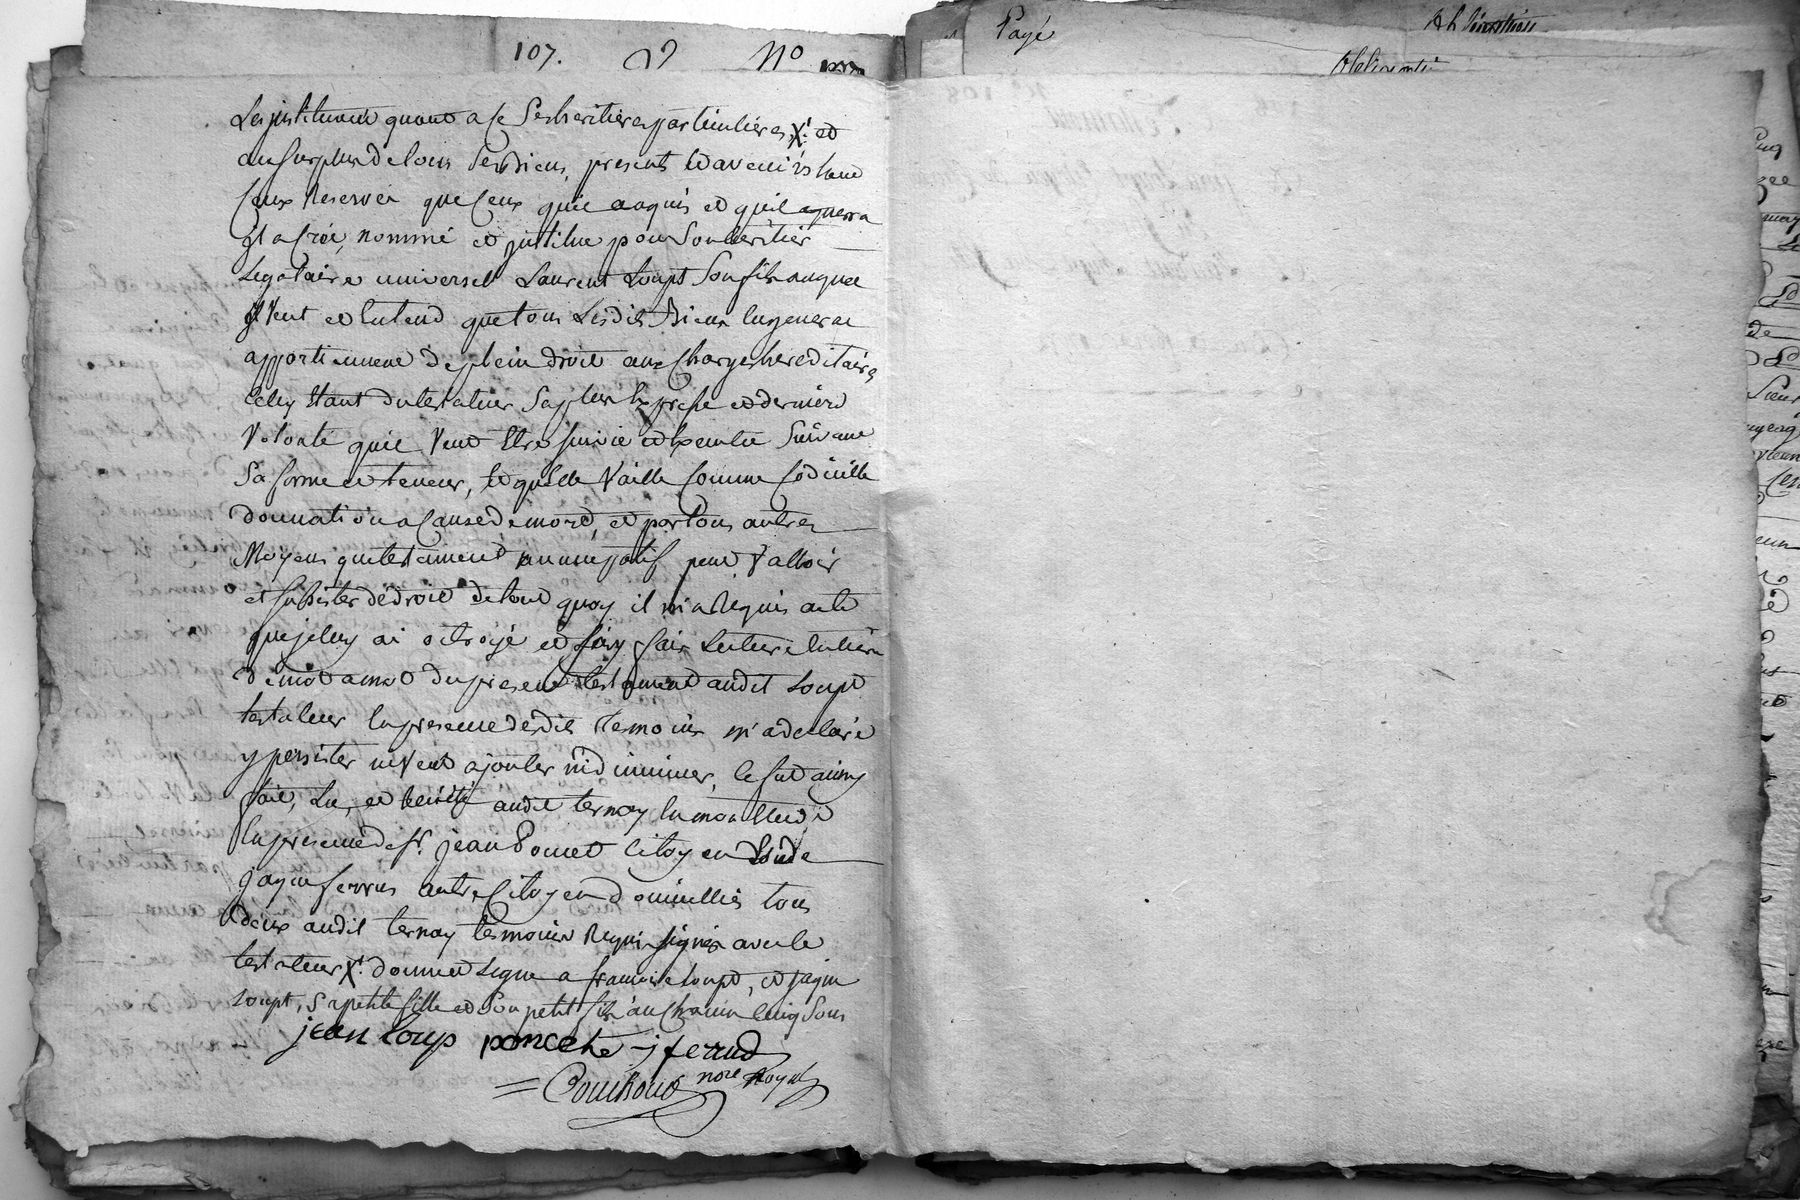 107. No
Payé
Les instituant quant a ce ses heritieres particulieres, X. et
au surplus de tous ses Biens, presents et avenirs hant
ceux Reservés que ceux quil a aquis et quil aquerra
Il a Créé, nommé et institue pour son heritier
Legataire universel Laurent Loupt son fils auquel
Il veut et Entend que tous lesdits Biens En general
appartiennent de plein droit aux Charges hereditaires
Celuy Etant du testateur sa plus Expresse et derniere
Volonté quil Veut Etre suivie et Executee suivant
sa forme et teneur, et quelle Vaille Comme Codicille
donnation a Cause de mort, et par tous autres
Moyens que testament nuncupatif peut Valloir
et subsister de droit de tout quoy il m'a Requis acte
que je luy ai octroyé et luy fais Lecture Entiere
de mot a mot du present testament audit Loupt
testateur En presence desdits temoins m'a declaré
y persister ne Veut ajouter ni diminuer, Ce fut ainsy
fait, Lu, et Recité audit ternay
En presence de sr. jean Poncet Citoyen
jaque ferrus autre Citoyen domicilliés tous
deux audit ternay temoins Requis signés avec le
testateur X. donne et Legue a francoise Loupt, et jaque
Loupt, sa petite fille et son petit fils a un Chacun Cinq sous
jean Loup poncet j ferrud
= Couchoud nore Royal